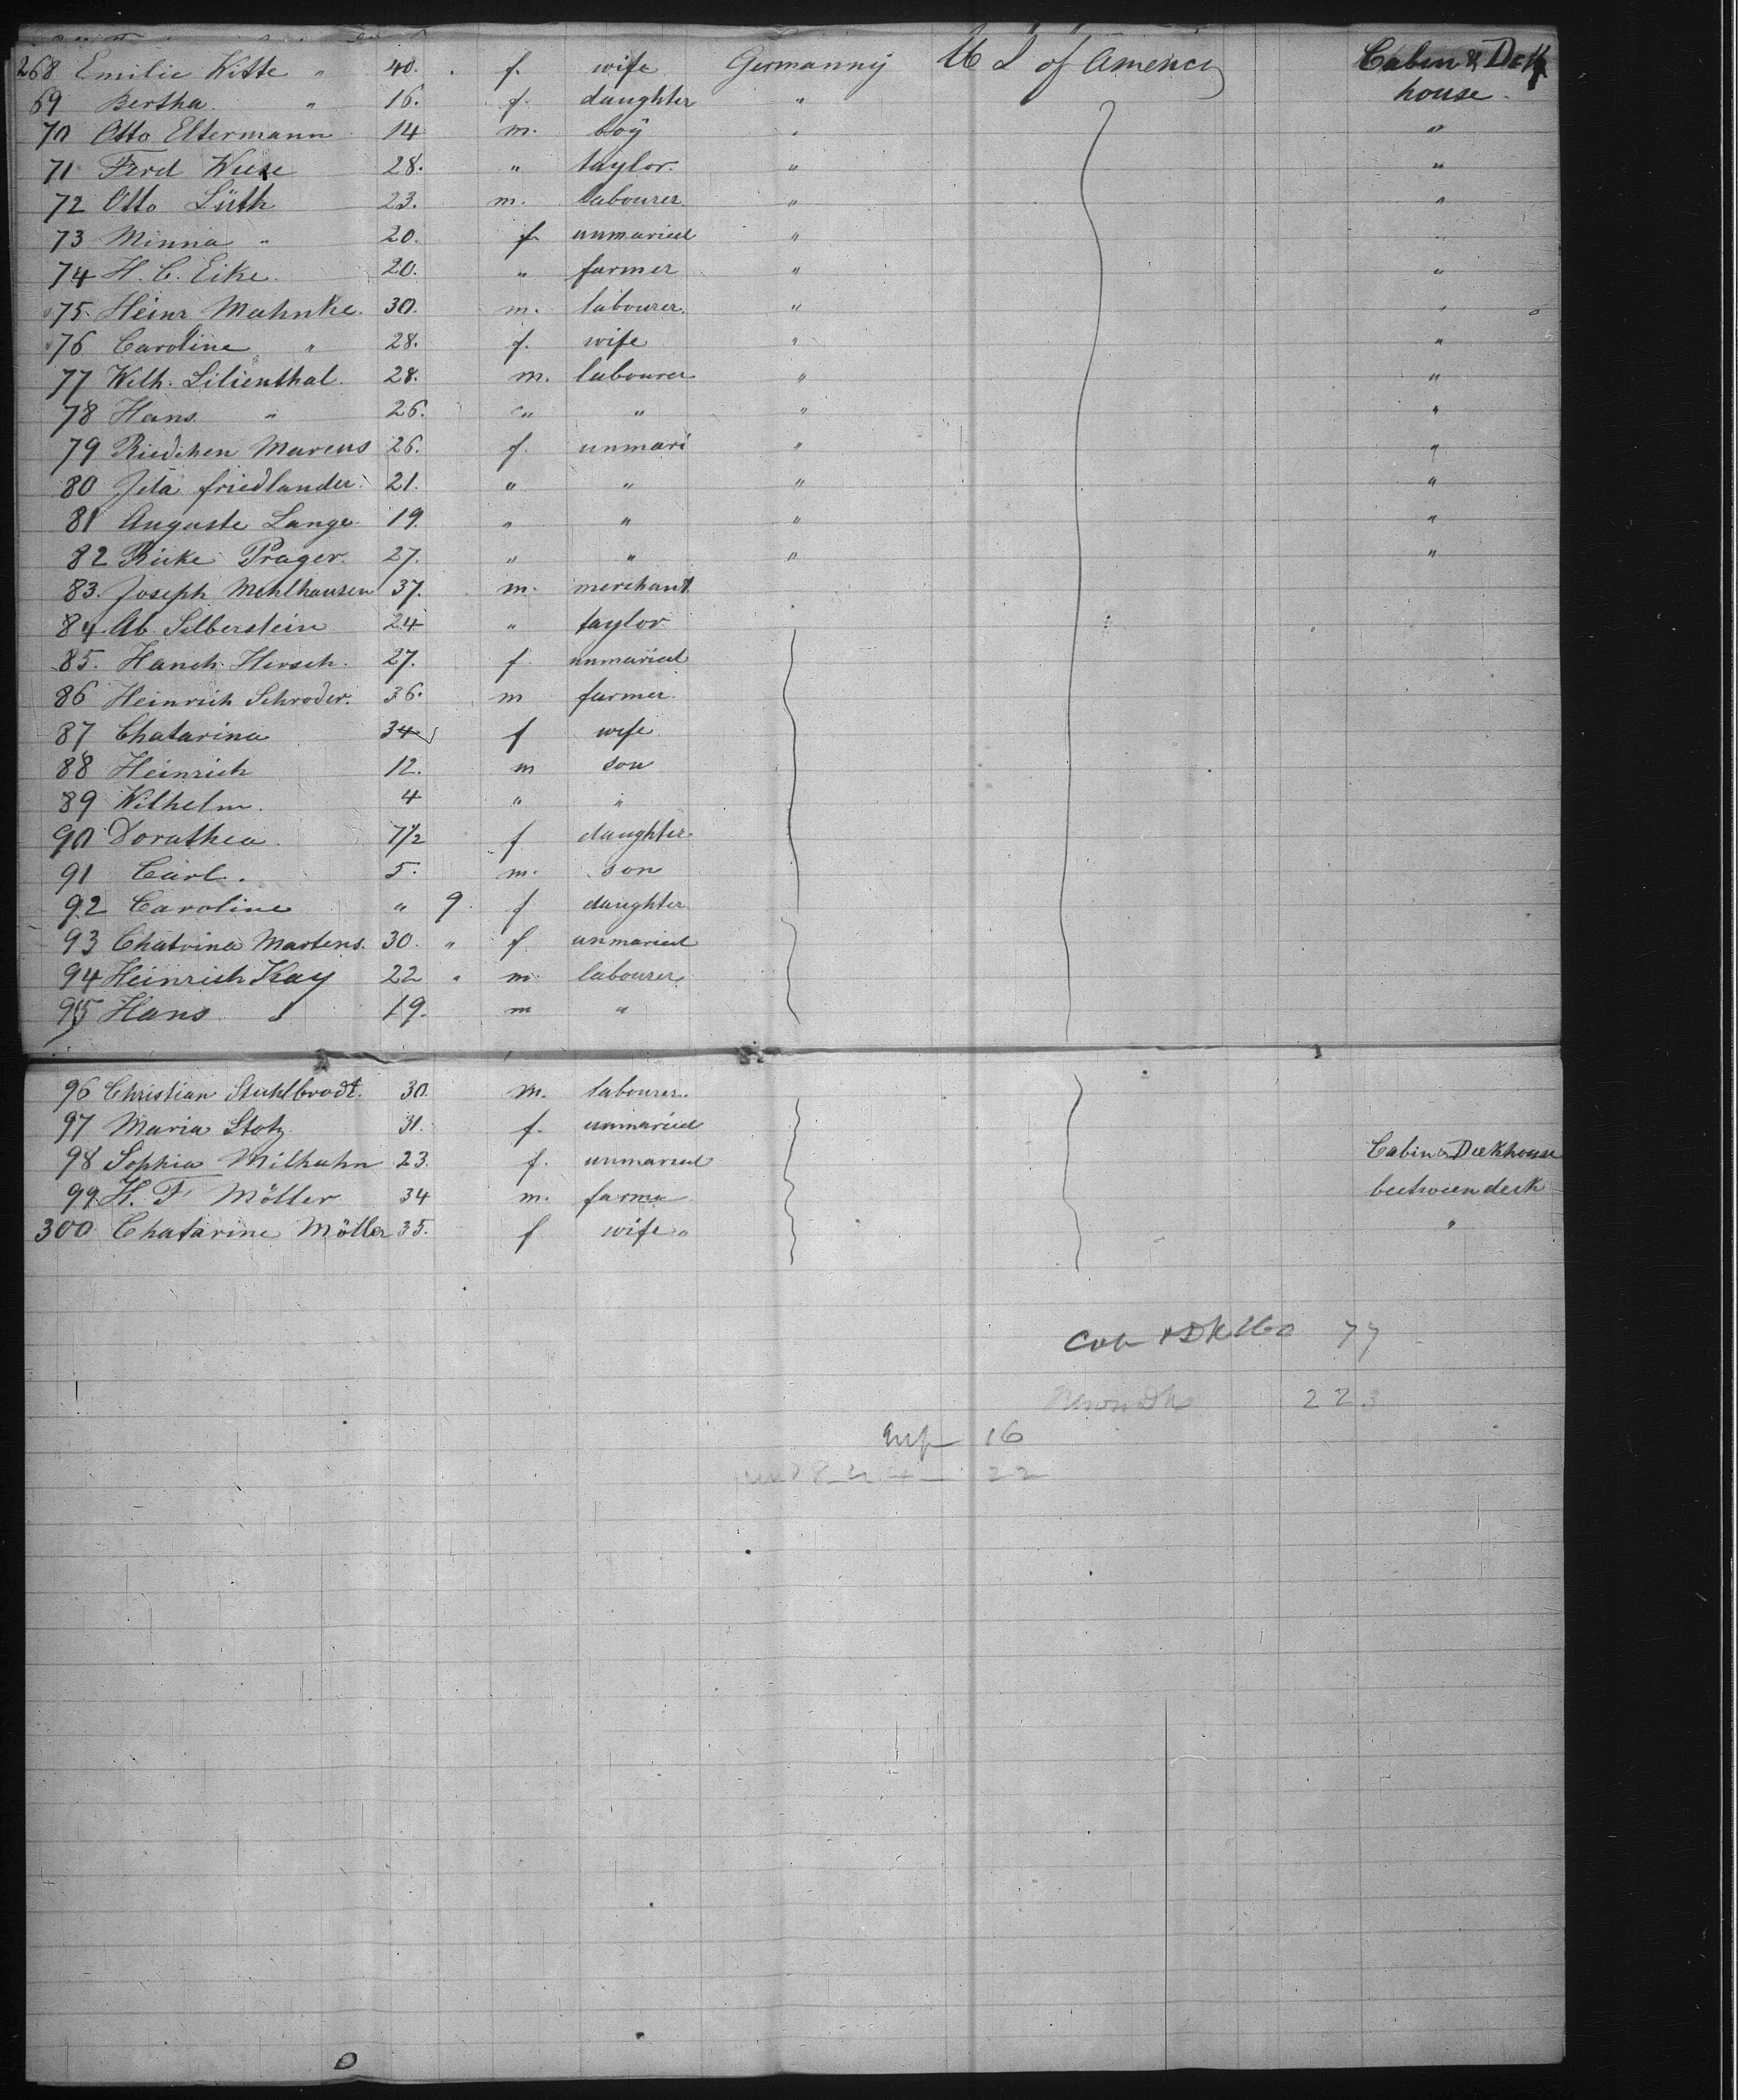 268 Emilie Witte " 40. f. wife Germanny U S of America Cabin & Deck
69 Bertha " 16. f. daughter " house
70 Otto Eltermann 14 m. boy " "
71 Ferd Wiese 28. " taylor. " "
72 Otto Lüth 23. m. labourer " "
73 Minna " 20. f. unmaried " "
74 H. C. Eike. 20. " farmer " "
75. Heinr Mahnke. 30. m. labourer. " "
76 Caroline " 28. f. wife " "
77 Wilh. Lilienthal. 28. m. labourer " "
78 Hans " 26. " " " "
79 Riedchen Marcus 26. f. unmari " "
80 Jita friedlander. 21. " " " "
81 Auguste Lange. 19. " " " "
82 Ricke Prager. 27. " " " "
83. Joseph Mehlhausen 37. m. merchant
84 Ab. Silberstein 24 " taylor
85. Hanch. Hirsch. 27. f unmaried
86 Heinrich Schroder. 36. m farmer.
87 Chatarina 34 f wife
88 Heinrich 12. m son
89 Wilhelm. 4 " "
90 Dorathea. 7 1/2 f daughter.
91 Carl. 5. m. son
92 Caroline " 9. f daughter
93 Chatrina Martens. 30. " f. unmaried
94 Heinrich Kay 22 " m. labourer
95 Hans " 19. m "
96 Christian Stuhlbrodt. 30. m. labourer.
97 Maria Stotz 31. f. unmaried
98 Sophia Milhahn 23. f. unmaried Cabin & Deckhouse
99 H. F. Möller 34 m. farme beetween deck
300 Chatarine Möller 35. f wife " "
77
223
Inf 16
22